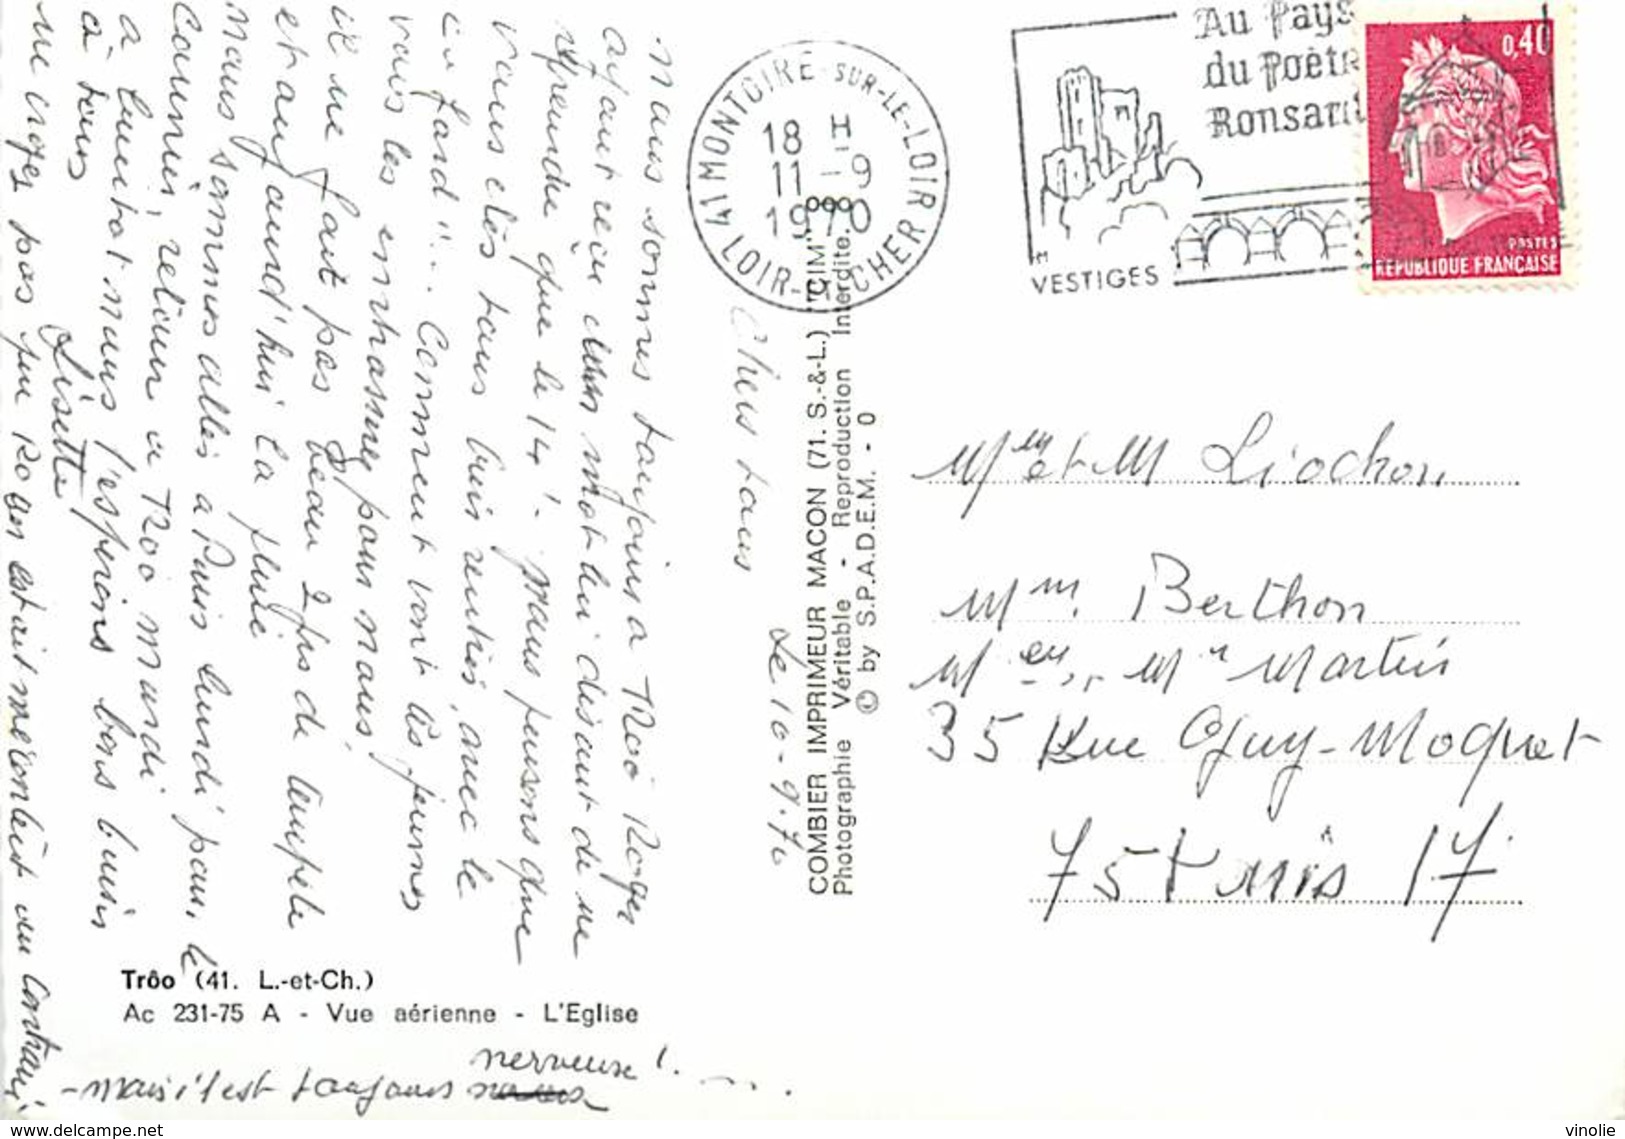 Chers tous
Le 10-9-70
Nous sommes toujours à Trôo Roger
ayant reçu un mot lui disant de ne
reprendre que le 14. Nous pensons que
vous êtes tous bien rentrés, avec le
"cu fard"... Comment vont les jeunes
vous les embrasserez pour nous.
il ne fait pas beau 2 jrs de tempête
et aujourd'hui la pluie
Nous sommes allés à Paris lundi pour le
Courrier, retour à Trôo mardi
à bientôt nous l'espérons bons baisers
à tous
Lisette
ne croyez pas que Roger était mécontent au contraire
- mais il est toujours
nerveux !. ....
Trôo (41. L.-et-Ch.)
Ac 231-75 A - Vue aérienne - L'Eglise
COMBIER IMPRIMEUR MACON (71. S.-&-L.) "CIM"
Photographie Véritable - Reproduction Interdite.
© by S.P.A.D.E.M. - 0
41 MONTOIRE-SUR-LE-LOIR
LOIR-ET-CHER
18 H
11 - 9
1970
Au Pays
du Poète
Ronsard
VESTIGES
0,40
POSTES
REPUBLIQUE FRANÇAISE
Mme et M Liochon
Mme Berthon
Mr Martin
35 Rue Guy-Moquet
75 Paris 17
www.delcampe.net
vinolie